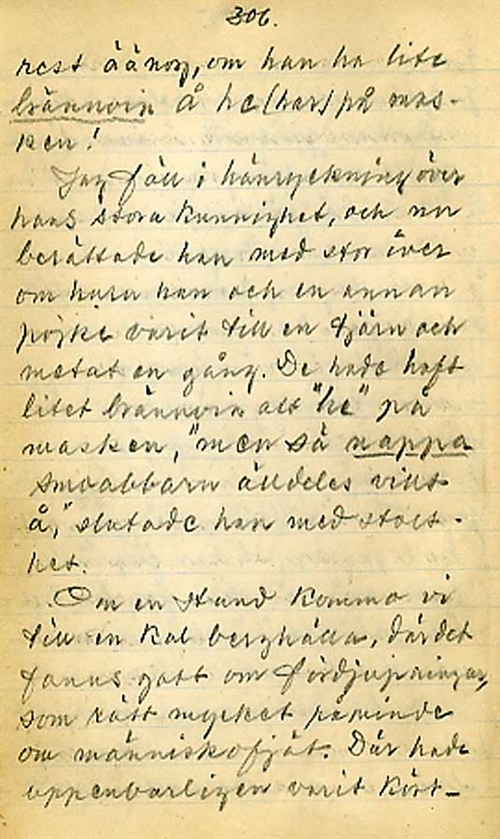 306.
rest åänog, om han ha lite
brännvin å he (har) på mas-
ken!
Jag föll i hänryckning över
hans stora kunnighet, och nu
berättade han med stor iver
om huru han och en annan
pojke varit till en tjärn och
metat en gång. De hade haft
litet brännvin att "he" på
masken, "men så nappa
smoabbarn alldeles vilt
å," slutade han med stolt-
het.
Om en stund kommo vi
till en kal berghälla, där det
fanns gott om fördjupningar,
som rätt mycket påminde
om människofjät. Där hade
uppenbarligen varit kört-